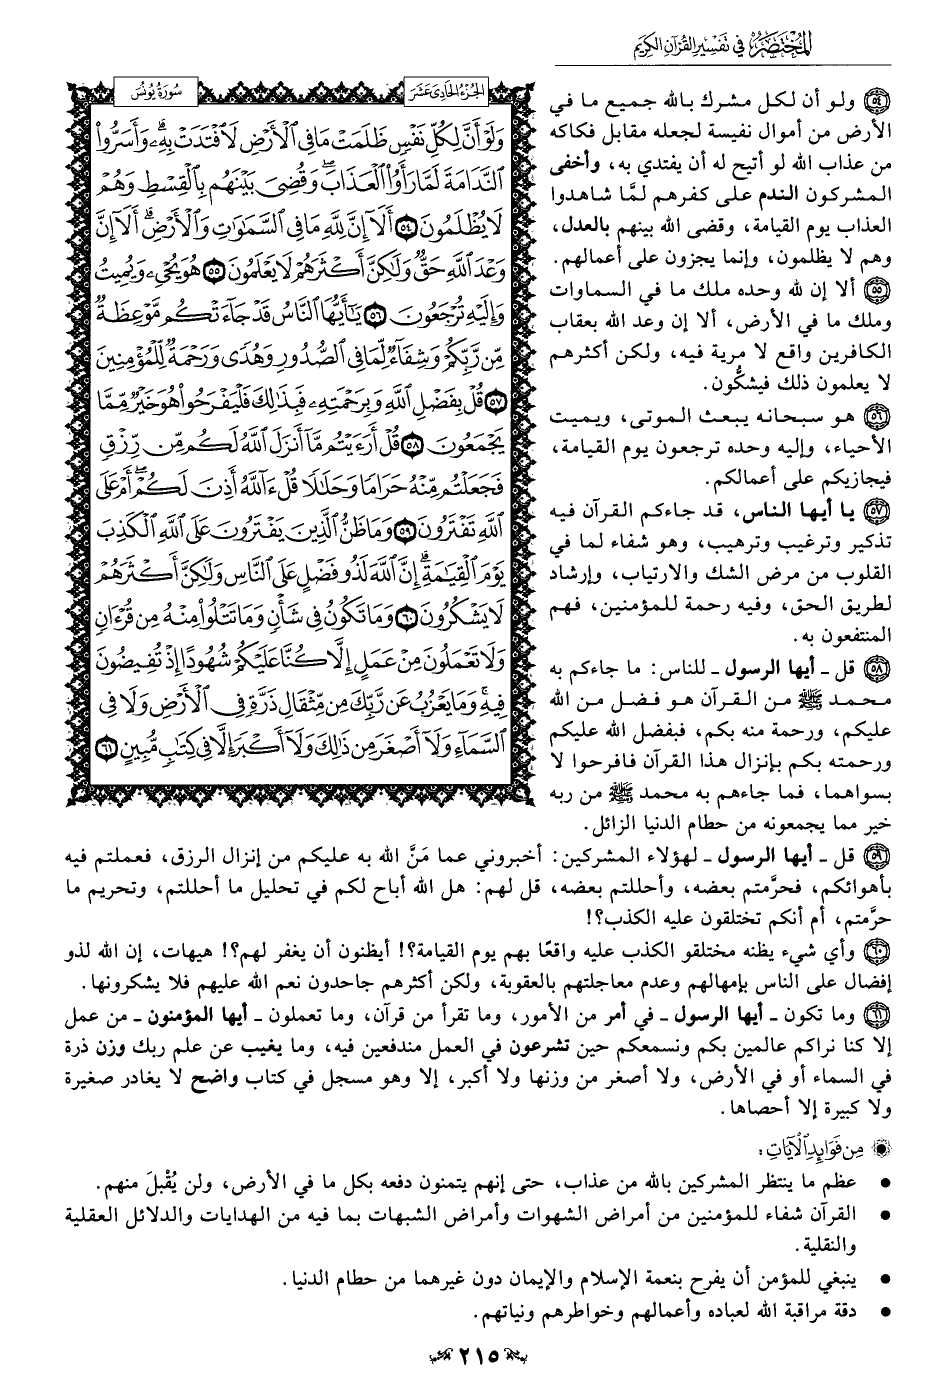 المختصر في تفسير القرآن الكريم
الجزء الحادي عشر
سورة يونس
وَلَوْ أَنَّ لِكُلِّ نَفْسٍ ظَلَمَتْ مَا فِي ٱلْأَرْضِ لَٱفْتَدَتْ بِهِۦۗ وَأَسَرُّوا۟
ٱلنَّدَامَةَ لَمَّا رَأَوُا۟ ٱلْعَذَابَۖ وَقُضِيَ بَيْنَهُم بِٱلْقِسْطِ وَهُمْ
لَا يُظْلَمُونَ ٥٤ أَلَآ إِنَّ لِلَّهِ مَا فِي ٱلسَّمَٰوَٰتِ وَٱلْأَرْضِۗ أَلَآ إِنَّ
وَعْدَ ٱللَّهِ حَقٌّ وَلَٰكِنَّ أَكْثَرَهُمْ لَا يَعْلَمُونَ ٥٥ هُوَ يُحْيِۦ وَيُمِيتُ
وَإِلَيْهِ تُرْجَعُونَ ٥٦ يَٰٓأَيُّهَا ٱلنَّاسُ قَدْ جَآءَتْكُم مَّوْعِظَةٌ
مِّن رَّبِّكُمْ وَشِفَآءٌ لِّمَا فِي ٱلصُّدُورِ وَهُدًى وَرَحْمَةٌ لِّلْمُؤْمِنِينَ
٥٧ قُلْ بِفَضْلِ ٱللَّهِ وَبِرَحْمَتِهِۦ فَبِذَٰلِكَ فَلْيَفْرَحُوا۟ هُوَ خَيْرٌ مِّمَّا
يَجْمَعُونَ ٥٨ قُلْ أَرَءَيْتُم مَّآ أَنزَلَ ٱللَّهُ لَكُم مِّن رِّزْقٍ
فَجَعَلْتُم مِّنْهُ حَرَامًا وَحَلَٰلًا قُلْ ءَآللَّهُ أَذِنَ لَكُمْۖ أَمْ عَلَى
ٱللَّهِ تَفْتَرُونَ ٥٩ وَمَا ظَنُّ ٱلَّذِينَ يَفْتَرُونَ عَلَى ٱللَّهِ ٱلْكَذِبَ
يَوْمَ ٱلْقِيَٰمَةِۗ إِنَّ ٱللَّهَ لَذُو فَضْلٍ عَلَى ٱلنَّاسِ وَلَٰكِنَّ أَكْثَرَهُمْ
لَا يَشْكُرُونَ ٦٠ وَمَا تَكُونُ فِي شَأْنٍ وَمَا تَتْلُوا۟ مِنْهُ مِن قُرْءَانٍ
وَلَا تَعْمَلُونَ مِنْ عَمَلٍ إِلَّا كُنَّا عَلَيْكُمْ شُهُودًا إِذْ تُفِيضُونَ
فِيهِۚ وَمَا يَعْزُبُ عَن رَّبِّكَ مِن مِّثْقَالِ ذَرَّةٍ فِي ٱلْأَرْضِ وَلَا فِي
ٱلسَّمَآءِ وَلَآ أَصْغَرَ مِن ذَٰلِكَ وَلَآ أَكْبَرَ إِلَّا فِي كِتَٰبٍ مُّبِينٍ ٦١
٥٤ ولو أن لكل مشرك بالله جميع ما في
الأرض من أموال نفيسة لجعله مقابل فكاكه
من عذاب الله لو أتيح له أن يفتدي به، وأخفى
المشركون الندم على كفرهم لمَّا شاهدوا
العذاب يوم القيامة، وقضى الله بينهم بالعدل،
وهم لا يظلمون، وإنما يجزون على أعمالهم.
٥٥ ألا إن لله وحده ملك ما في السماوات
وملك ما في الأرض، ألا إن وعد الله بعقاب
الكافرين واقع لا مرية فيه، ولكن أكثرهم
لا يعلمون ذلك فيشكُّون.
٥٦ هو سبحانه يبعث الموتى، ويميت
الأحياء، وإليه وحده ترجعون يوم القيامة،
فيجازيكم على أعمالكم.
٥٧ يا أيها الناس، قد جاءكم القرآن فيه
تذكير وترغيب وترهيب، وهو شفاء لما في
القلوب من مرض الشك والارتياب، وإرشاد
لطريق الحق، وفيه رحمة للمؤمنين، فهم
المنتفعون به.
٥٨ قل ـ أيها الرسول ـ للناس: ما جاءكم به
محمد ﷺ من القرآن هو فضل من الله
عليكم، ورحمة منه بكم، فبفضل الله عليكم
ورحمته بكم بإنزال هذا القرآن فافرحوا لا
بسواهما، فما جاءهم به محمد ﷺ من ربه
خير مما يجمعونه من حطام الدنيا الزائل.
٥٩ قل ـ أيها الرسول ـ لهؤلاء المشركين: أخبروني عما مَنَّ الله به عليكم من إنزال الرزق، فعملتم فيه
بأهوائكم، فحرَّمتم بعضه، وأحللتم بعضه، قل لهم: هل الله أباح لكم في تحليل ما أحللتم، وتحريم ما
حرَّمتم، أم أنكم تختلقون عليه الكذب؟!
٦٠ وأي شيء يظنه مختلقو الكذب عليه واقعًا بهم يوم القيامة؟! أيظنون أن يغفر لهم؟! هيهات، إن الله لذو
إفضال على الناس بإمهالهم وعدم معاجلتهم بالعقوبة، ولكن أكثرهم جاحدون نعم الله عليهم فلا يشكرونها.
٦١ وما تكون ـ أيها الرسول ـ في أمر من الأمور، وما تقرأ من قرآن، وما تعملون ـ أيها المؤمنون ـ من عمل
إلا كنا نراكم عالمين بكم ونسمعكم حين تشرعون في العمل مندفعين فيه، وما يغيب عن علم ربك وزن ذرة
في السماء أو في الأرض، ولا أصغر من وزنها ولا أكبر، إلا وهو مسجل في كتاب واضح لا يغادر صغيرة
ولا كبيرة إلا أحصاها.
من فوائد الآيات:
• عظم ما ينتظر المشركين بالله من عذاب، حتى إنهم يتمنون دفعه بكل ما في الأرض، ولن يُقْبلَ منهم.
• القرآن شفاء للمؤمنين من أمراض الشهوات وأمراض الشبهات بما فيه من الهدايات والدلائل العقلية
والنقلية.
• ينبغي للمؤمن أن يفرح بنعمة الإسلام والإيمان دون غيرهما من حطام الدنيا.
• دقة مراقبة الله لعباده وأعمالهم وخواطرهم ونياتهم.
٢١٥